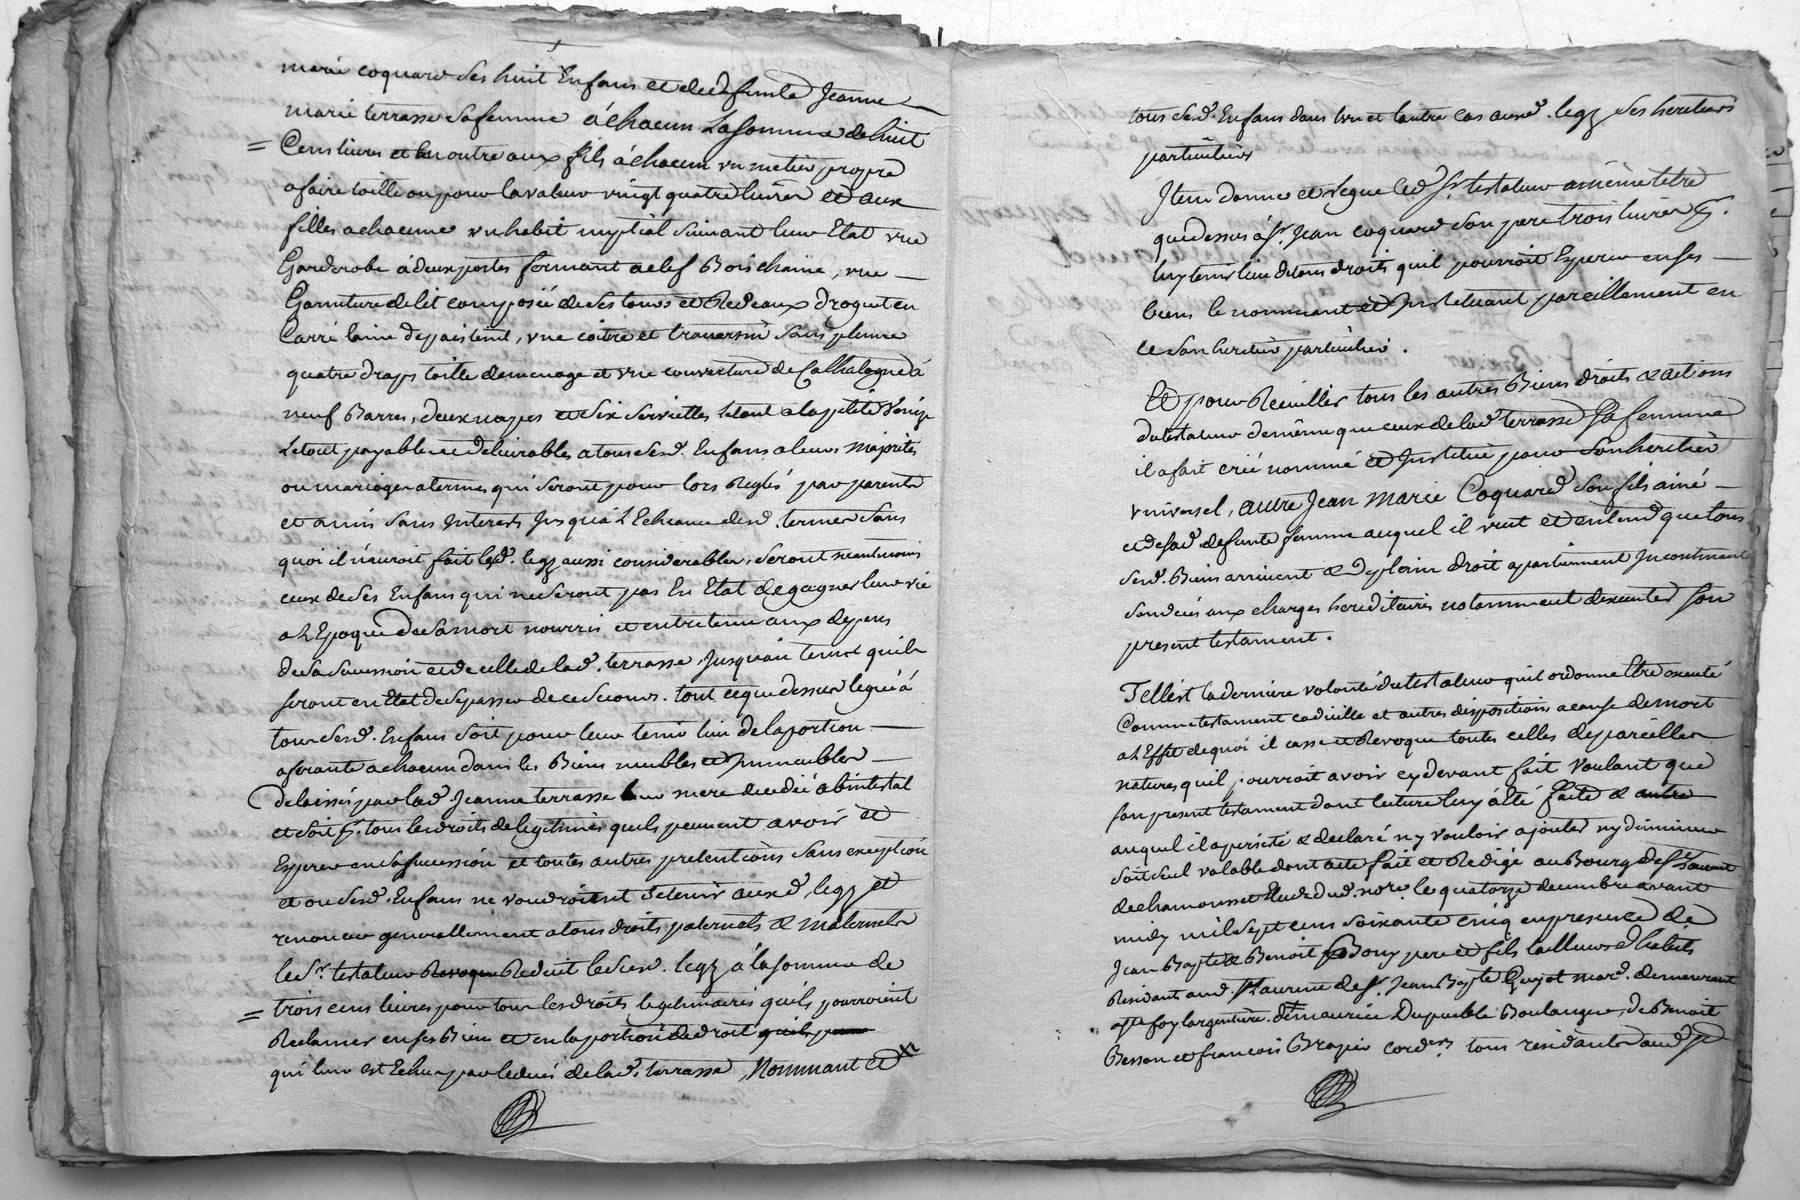 marie coquard ses huit Enfans et de defunte Jeanne
marie terrasse sa femme a chacun La somme de huit
Cens livres et en outre aux fils a chacun un metier propre
a faire toille ou pour la valeur vingt quatre livres et aux
filles a chacune un habit nuptial suivant leur Etat une
Garderobe a deux portes fermant a clef Bois chaine, une
Garniture de lit composée de ses tours et Rideaux droguet en
Carré laine de pais teint, une coitre et traversin sans plume
quatre draps toille de menage et une couverture de Cathalogne à
neuf Barres, deux napes et six serviettes letout a la petite Venize
Letout payable et delivrable a tous sesd. Enfans a leurs majorités
ou mariages a termes qui seront pour lors Reglés par parents
et amis sans Interets Jusqu'a L'Echeance desd. termes sans
quoi il n'auroit fait lesd. legz aussi considerables, seront neantmoins
ceux de ses Enfans qui ne seront pas En Etat de gagner leur vie
a L'Epoque de sa mort nourris et entretenus aux depens
de sa succession et de celle de lad. terrasse Jusqu'au tems qu'ils
seront en Etat de se passer de ce secours. tout ce que dessus legué á
tous sesd. Enfans soit pour leur tenir lieu de la portion
aferante a chacun dans les Biens meubles et Immeubles
delaissés par lad. Jeanne terrasse leur mere decedée abintestat
et soit pr. tous les droits de legitimes quils peuvent avoir et
Esperer en sa succession et toutes autres pretentions sans exception
et ou sesd. Enfans ne voudroient se tenir auxd. legz et
renoncer generallement a tous droits paternels & maternels
le Sr. testateur Revoque Reduit lesusd. legz á la somme de
trois cens livres pour tous les droits legitimaires quils pourroient
Reclamer en ses Biens et en la portion de droit quils peuv
qui leur est Echue par le decés de lad. terrasse, Nommant et
tous sesd. Enfans dans l'un et l'autre cas auxd. legz ses heritiers
particuliers
Item donne et legue led. Sr. testateur a même titre
que dessus á Sr. Jean coquard son pere trois livres pr.
luy tenir lieu de tous droits quil pourroit Esperer en ses
biens le nommant et Instituant pareillement en
ce son heritier particulier.
Et pour Recueillir tous les autres Biens droits & actions
du testateur de même que ceux de lad. terrasse sa femme
il a fait créé nommé et Institué pour son heritier
universel, autre Jean Marie Coquard son fils ainé
et de sad. defunte femme auquel il veut et entend que tous
sesd. Biens arrivent & de plein droit apartiennent Incontinent
son decés aux charges hereditaires notamment dexecuter son
present testament.
Telle est la derniere volonté du testateur quil ordonne Etre executé
Comme testament codicille et autres dispositions a cause de mort
a L'Effet de quoi il casse et Revoque toutes celles de pareilles
natures quil pourroit avoir cydevant fait Voulant que
son present testament dont lecture luy a été faite & autre
auquel il a persisté & declaré n'y vouloir ajouter ny diminuer
soit seul valable dont acte fait et Redigé au Bourg de St. Laurent
de chamousset Etude dud. nore. le quatorze decembre avant
midy mil sept cens soixante cinq en presence de
Jean Bapte & Benoit Bony pere et fils tailleurs d'habits
Residants aud. St. Laurent de Sr. Jean Bapte Guyot mard. demeurant
a Ste foy largentiere. Etienne maurice Dupuible Boulanger, de Benoit
Besson et francois Brazier cordrs. tous residants aud. St